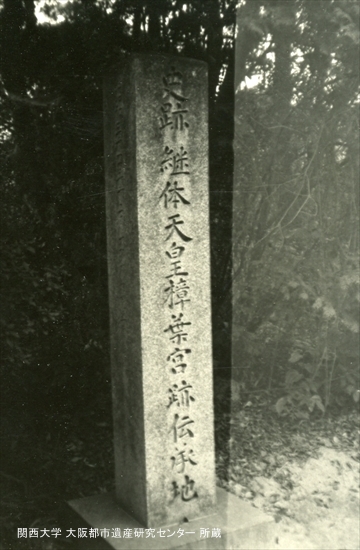 史跡 継体天皇樟葉宮跡伝承地
関西大学 大阪都市遺産研究センター 所蔵